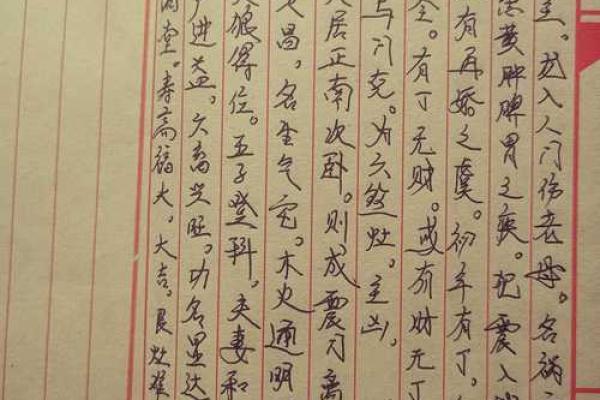 主。龙入人门伤老母。名祸
患黄肿脾胃之疾。犯震入
有再婚之虞。初年有丁。
全。有丁无财。或有财无丁
与门克。为六煞灶。主凶。
居正南次卧。则成震门离
昌。名生气宅。木火通明
狼得位。五子登科。夫妻和
进益。六畜兴旺。功名显达
堂。寿高福大。大吉。艮灶